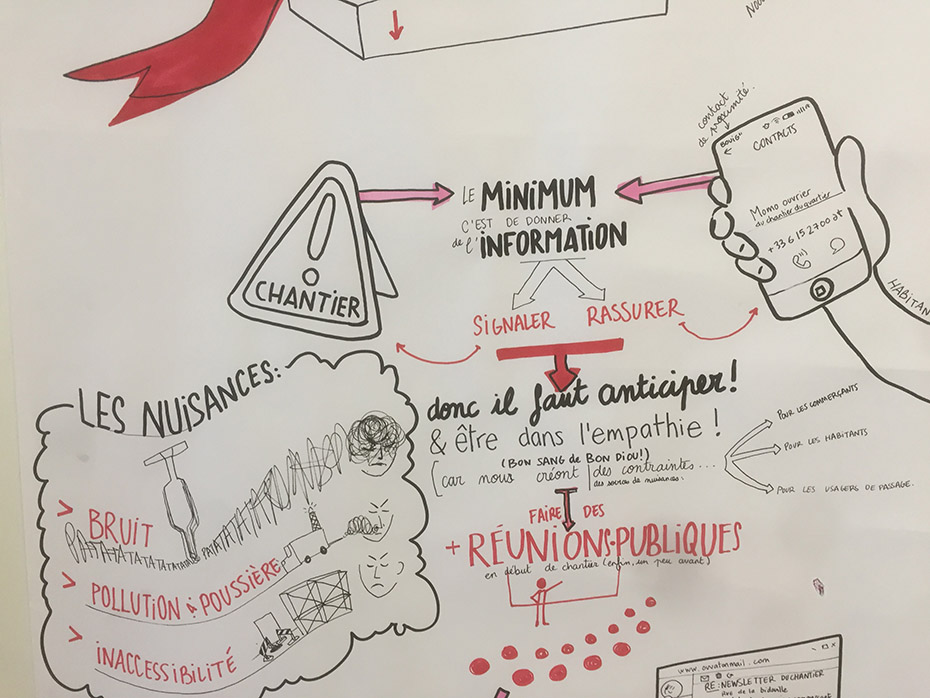 contact
de proximité.
CONTACTS
Momo ouvrier
du chantier du quartier
LE MINIMUM
C'EST DE DONNER
de l'INFORMATION
CHANTIER
SIGNALER RASSURER
LES NUISANCES:
BRUIT
POLLUTION & POUSSIÈRE
INACCESSIBILITÉ
donc il faut anticiper!
& être dans l'empathie!
(BON SANG de BON DIOU!)
(car nous créont des contraintes...
des sources de nuisances.
POUR LES COMMERÇANTS
POUR LES HABITANTS
POUR LES USAGERS DE PASSAGE.
FAIRE DES
+ RÉUNIONS PUBLIQUES
en début de chantier (enfin, un peu avant)
HABITAN
RE: NEWSLETTER DU CHANTIER
Rue de la